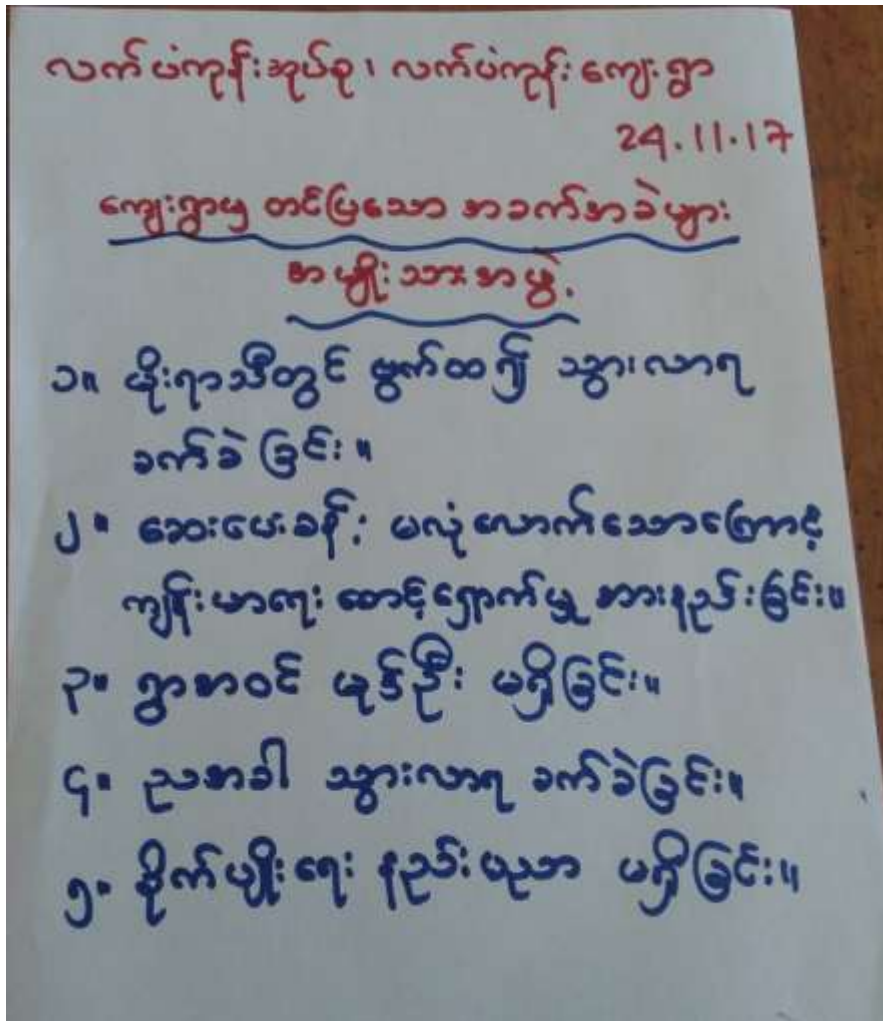 လက်ပံကုန်းအုပ်စု၊ လက်ပံကုန်းကျေးရွာ
24.11.17
ကျေးရွာမှ တင်ပြသော အခက်အခဲများ
အမျိုးသားအဖွဲ့
၁။ မိုးရာသီတွင် ဗွက်ထ၍ သွားလာရ
ခက်ခဲခြင်း။
၂။ ဆေးပေးခန်း မလုံလောက်သောကြောင့်
ကျန်းမာရေး စောင့်ရှောက်မှု အားနည်းခြင်း။
၃။ ရွာအဝင် မုဒ်ဦး မရှိခြင်း။
၄။ ညအခါ သွားလာရ ခက်ခဲခြင်း။
၅။ စိုက်ပျိုးရေး နည်းပညာ မရှိခြင်း။